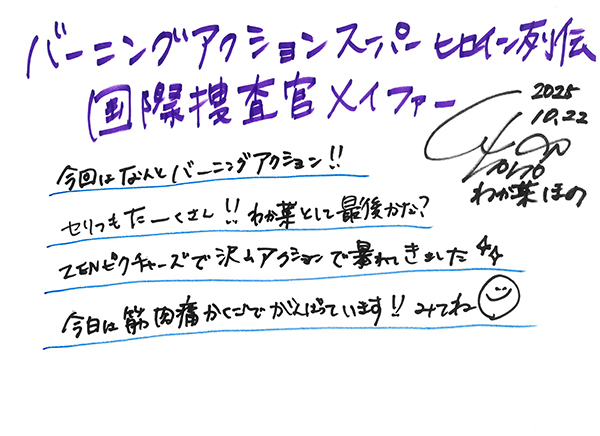 バーニングアクションスーパーヒロイン列伝
国際捜査官メイファー
2025
10.22
わか葉ほの
今回はなんとバーニングアクション!!
セリフもたーくさん!!わか葉として最後かな?
ZENピクチャーズで沢山アクションで暴れてきました
今日は筋肉痛かくごでがんばっています!!みてね